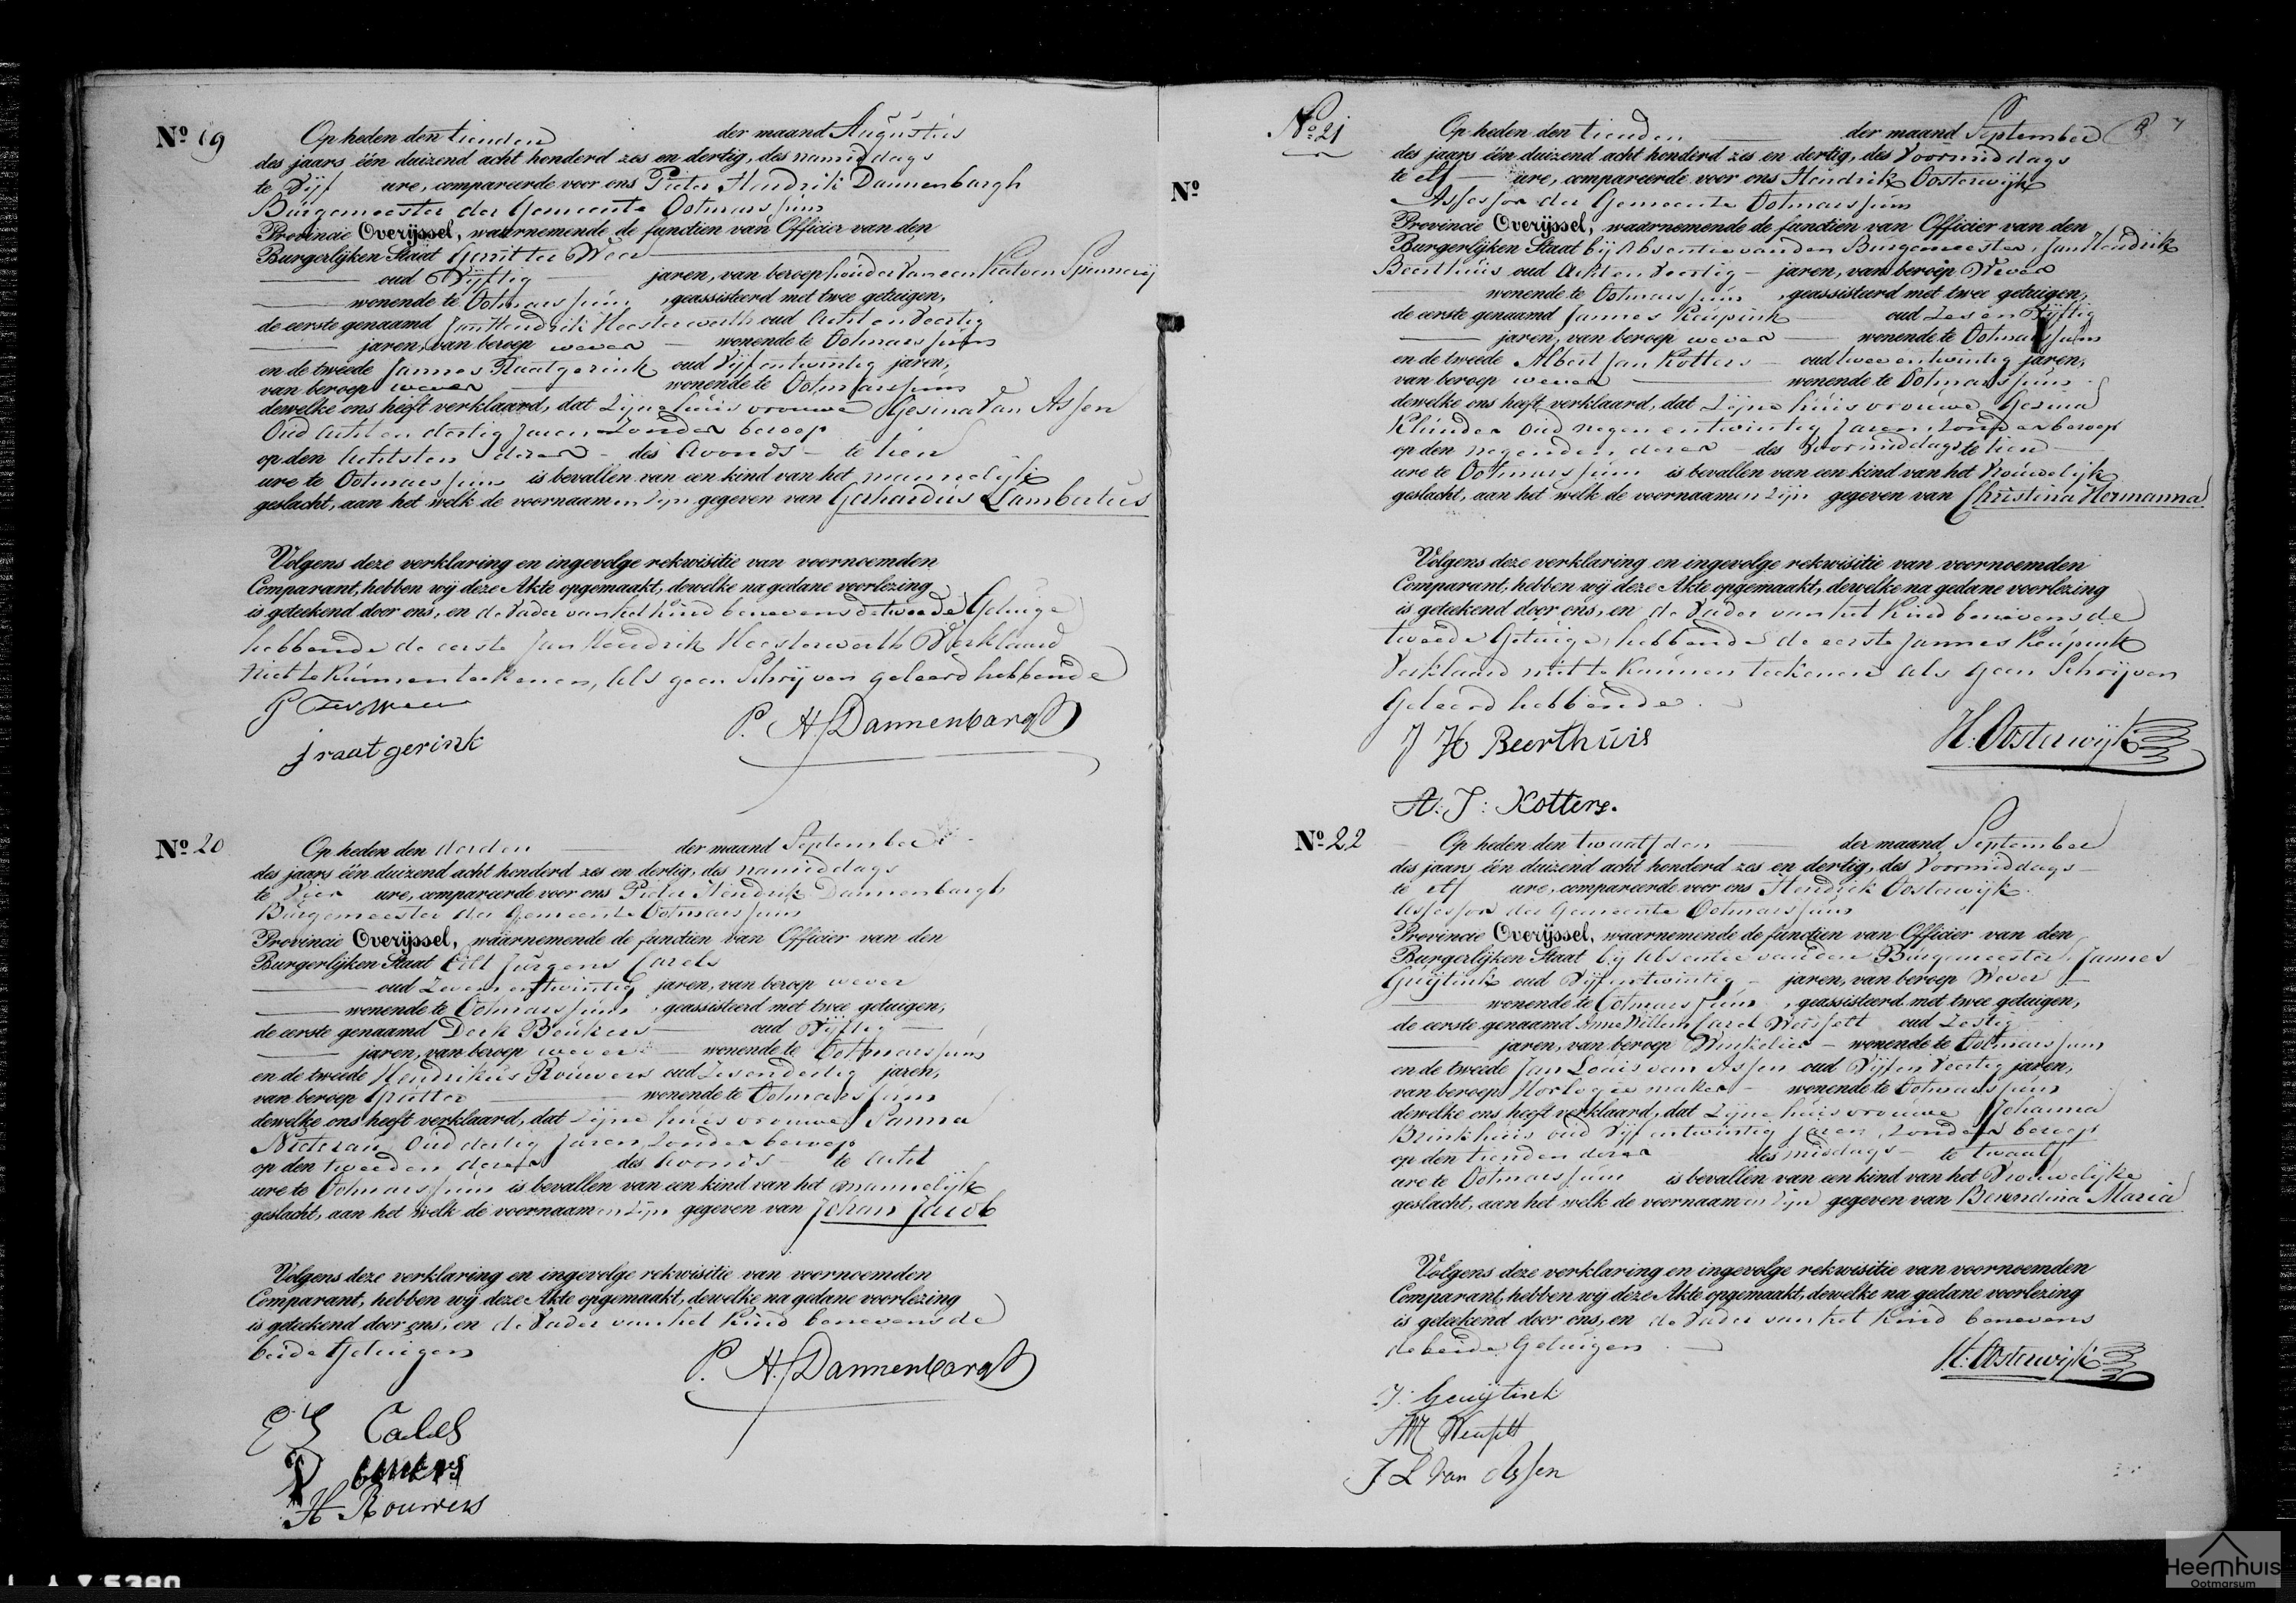 Nº 19
Op heden den tienden der maand Augustus
des jaars één duizend acht honderd zes en dertig, des namiddags
te Vijf ure, compareerde voor ons Pieter Hendrik Dannenbargh
Burgemeester der Gemeente Ootmarssum
Provincie Overijssel, waarnemende de functien van Officier van den
Burgerlijken Staat Gerrit ter Weer
oud Vijftig jaren, van beroep houder van een Katoen Spinnerij
wonende te Ootmarssum, geassisteerd met twee getuigen,
de eerste genaamd Jan Hendrik Heesterwerth oud Acht en Veertig
jaren, van beroep wever wonende te Ootmarssum
en de tweede Jannes Raatgerink oud Vijf entwintig jaren,
van beroep wever wonende te Ootmarssum
dewelke ons heeft verklaard, dat Zijne huisvrouwe Gesina Van Assen
Oud Acht en dertig Jaren, Zonder beroep
op den Achtsten dezer des Avonds te tien
ure te Ootmarssum is bevallen van een kind van het mannelijk
geslacht, aan het welk de voornaamen Zijn gegeven van Gerhardus Lambertus
Volgens deze verklaring en ingevolge rekwisitie van voornoemden
Comparant, hebben wij deze Akte opgemaakt, dewelke na gedane voorlezing
is geteekend door ons, en de Vader van het Kind benevens de tweede Getuige
hebbende de eerste Jan Hendrik Heesterwerth Verklaard
Niet te Kunnen teekenen, Als geen Schrijven geleerd hebbende
G Ter Weer
P. H. Dannenbargh
j raatgerink
Nº 20
Op heden den derden der maand September
des jaars één duizend acht honderd zes en dertig, des namiddags
te Vier ure, compareerde voor ons Pieter Hendrik Dannenbargh
Burgemeester der Gemeente Ootmarssum
Provincie Overijssel, waarnemende de functien van Officier van den
Burgerlijken Staat Jurgens Carels
oud Zeven entwintig jaren, van beroep wever
wonende te Ootmarssum, geassisteerd met twee getuigen,
de eerste genaamd Derk Beukers oud Vijftig
jaren, van beroep wever wonende te Ootmarssum
en de tweede Hendrikus Rouwers oud Zes en dertig jaren,
van beroep wonende te Ootmarssum
dewelke ons heeft verklaard, dat Zijne huisvrouwe Sanna
Oud dertig Jaren, Zonder beroep
op den tweeden dezer des Avonds te Acht
ure te Ootmarssum is bevallen van een kind van het mannelijk
geslacht, aan het welk de voornaamen Zijn gegeven van Johan Jacob
Volgens deze verklaring en ingevolge rekwisitie van voornoemden
Comparant, hebben wij deze Akte opgemaakt, dewelke na gedane voorlezing
is geteekend door ons, en de Vader van het Kind benevens de
beide Getuigen
P. H. Dannenbargh
E J Carels
D beukers
H Rouwers
Nº 21
Nº
Op heden den tienden der maand September
des jaars één duizend acht honderd zes en dertig, des Voormiddags
te elf ure, compareerde voor ons Hendrik Oosterwijk
Assessor der Gemeente Ootmarssum
Provincie Overijssel, waarnemende de functien van Officier van den
Burgerlijken Staat bij Absentie van den Burgemeester, Jan Hendrik
Beerthuis oud Acht en Veertig jaren, van beroep Wever
wonende te Ootmarssum, geassisteerd met twee getuigen,
de eerste genaamd Jannes Keupink oud Zes en Vijftig
jaren, van beroep wever wonende te Ootmarssum
en de tweede Albert Jan Kotters oud twee entwintig jaren,
van beroep wever wonende te Ootmarssum
dewelke ons heeft verklaard, dat Zijne huisvrouwe Gesina
Klunder Oud negen entwintig Jaren, Zonder beroep
op den negenden dezer des Voormiddags te tien
ure te Ootmarssum is bevallen van een kind van het Vrouwelijk
geslacht, aan het welk de voornaamen Zijn gegeven van Christina Hermanna
Volgens deze verklaring en ingevolge rekwisitie van voornoemden
Comparant, hebben wij deze Akte opgemaakt, dewelke na gedane voorlezing
is geteekend door ons, en de Vader van het Kind benevens de
tweede Getuige, hebbende de eerste Jannes Keupink
Verklaard niet te Kunnen teekenen als geen Schrijven
Geleerd hebbende.
J H Beerthuis
H: Oosterwijk
A: J: Kotters.
Nº 22
Op heden den twaalfden der maand September
des jaars één duizend acht honderd zes en dertig, des Voormiddags
te elf ure, compareerde voor ons Hendrik Oosterwijk
Assessor der Gemeente Ootmarssum
Provincie Overijssel, waarnemende de functien van Officier van den
Burgerlijken Staat bij Absentie van den Burgemeester, Jannes
Gruijtink oud Vijf entwintig jaren, van beroep Wever
wonende te Ootmarssum, geassisteerd met twee getuigen,
de eerste genaamd Willem Carel oud Zestig
jaren, van beroep Winkelier wonende te Ootmarssum
en de tweede Jan Louis van Assen oud Vijf en Veertig jaren,
van beroep Horlogiemaker wonende te Ootmarssum
dewelke ons heeft verklaard, dat Zijne huisvrouwe Johanna
Brinkhuis oud Vijf entwintig Jaren, Zonder beroep
op den tienden dezer des middags te twaalf
ure te Ootmarssum is bevallen van een kind van het Vrouwelijke
geslacht, aan het welk de voornaamen Zijn gegeven van Berendina Maria
Volgens deze verklaring en ingevolge rekwisitie van voornoemden
Comparant, hebben wij deze Akte opgemaakt, dewelke na gedane voorlezing
is geteekend door ons, en de Vader van het Kind benevens
de beide Getuigen
H: Oosterwijk
J: Gruijtink
J L Van Assen
Heemhuis
Ootmarsum